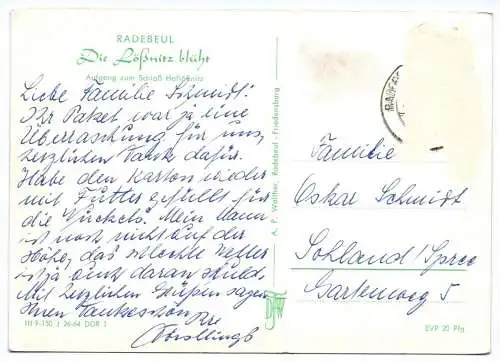 RADEBEUL
Die Lößnitz blüht
Aufgang zum Schloß Hoflößnitz
Liebe Familie Schmidt!
Ihr Paket war ja eine
Überraschung für uns,
herzlichen Dank dafür.
Habe den Karton wieder
mit Futter gefüllt für
die Mein Mann
ist noch nicht auf der
Höhe, das schlechte Wetter
ist ja auch daran Schuld.
Mit herzlichen Grüßen sagen
Ihnen Dankeschön
Ihre
III 9-150 J 26-64 DDR 1
A. P. Walther, Radebeul, Friedensburg
RADEBE
Familie
Oskar Schmidt
Sohland/Spree
Gartenweg 5
EVP 20 Pfg.